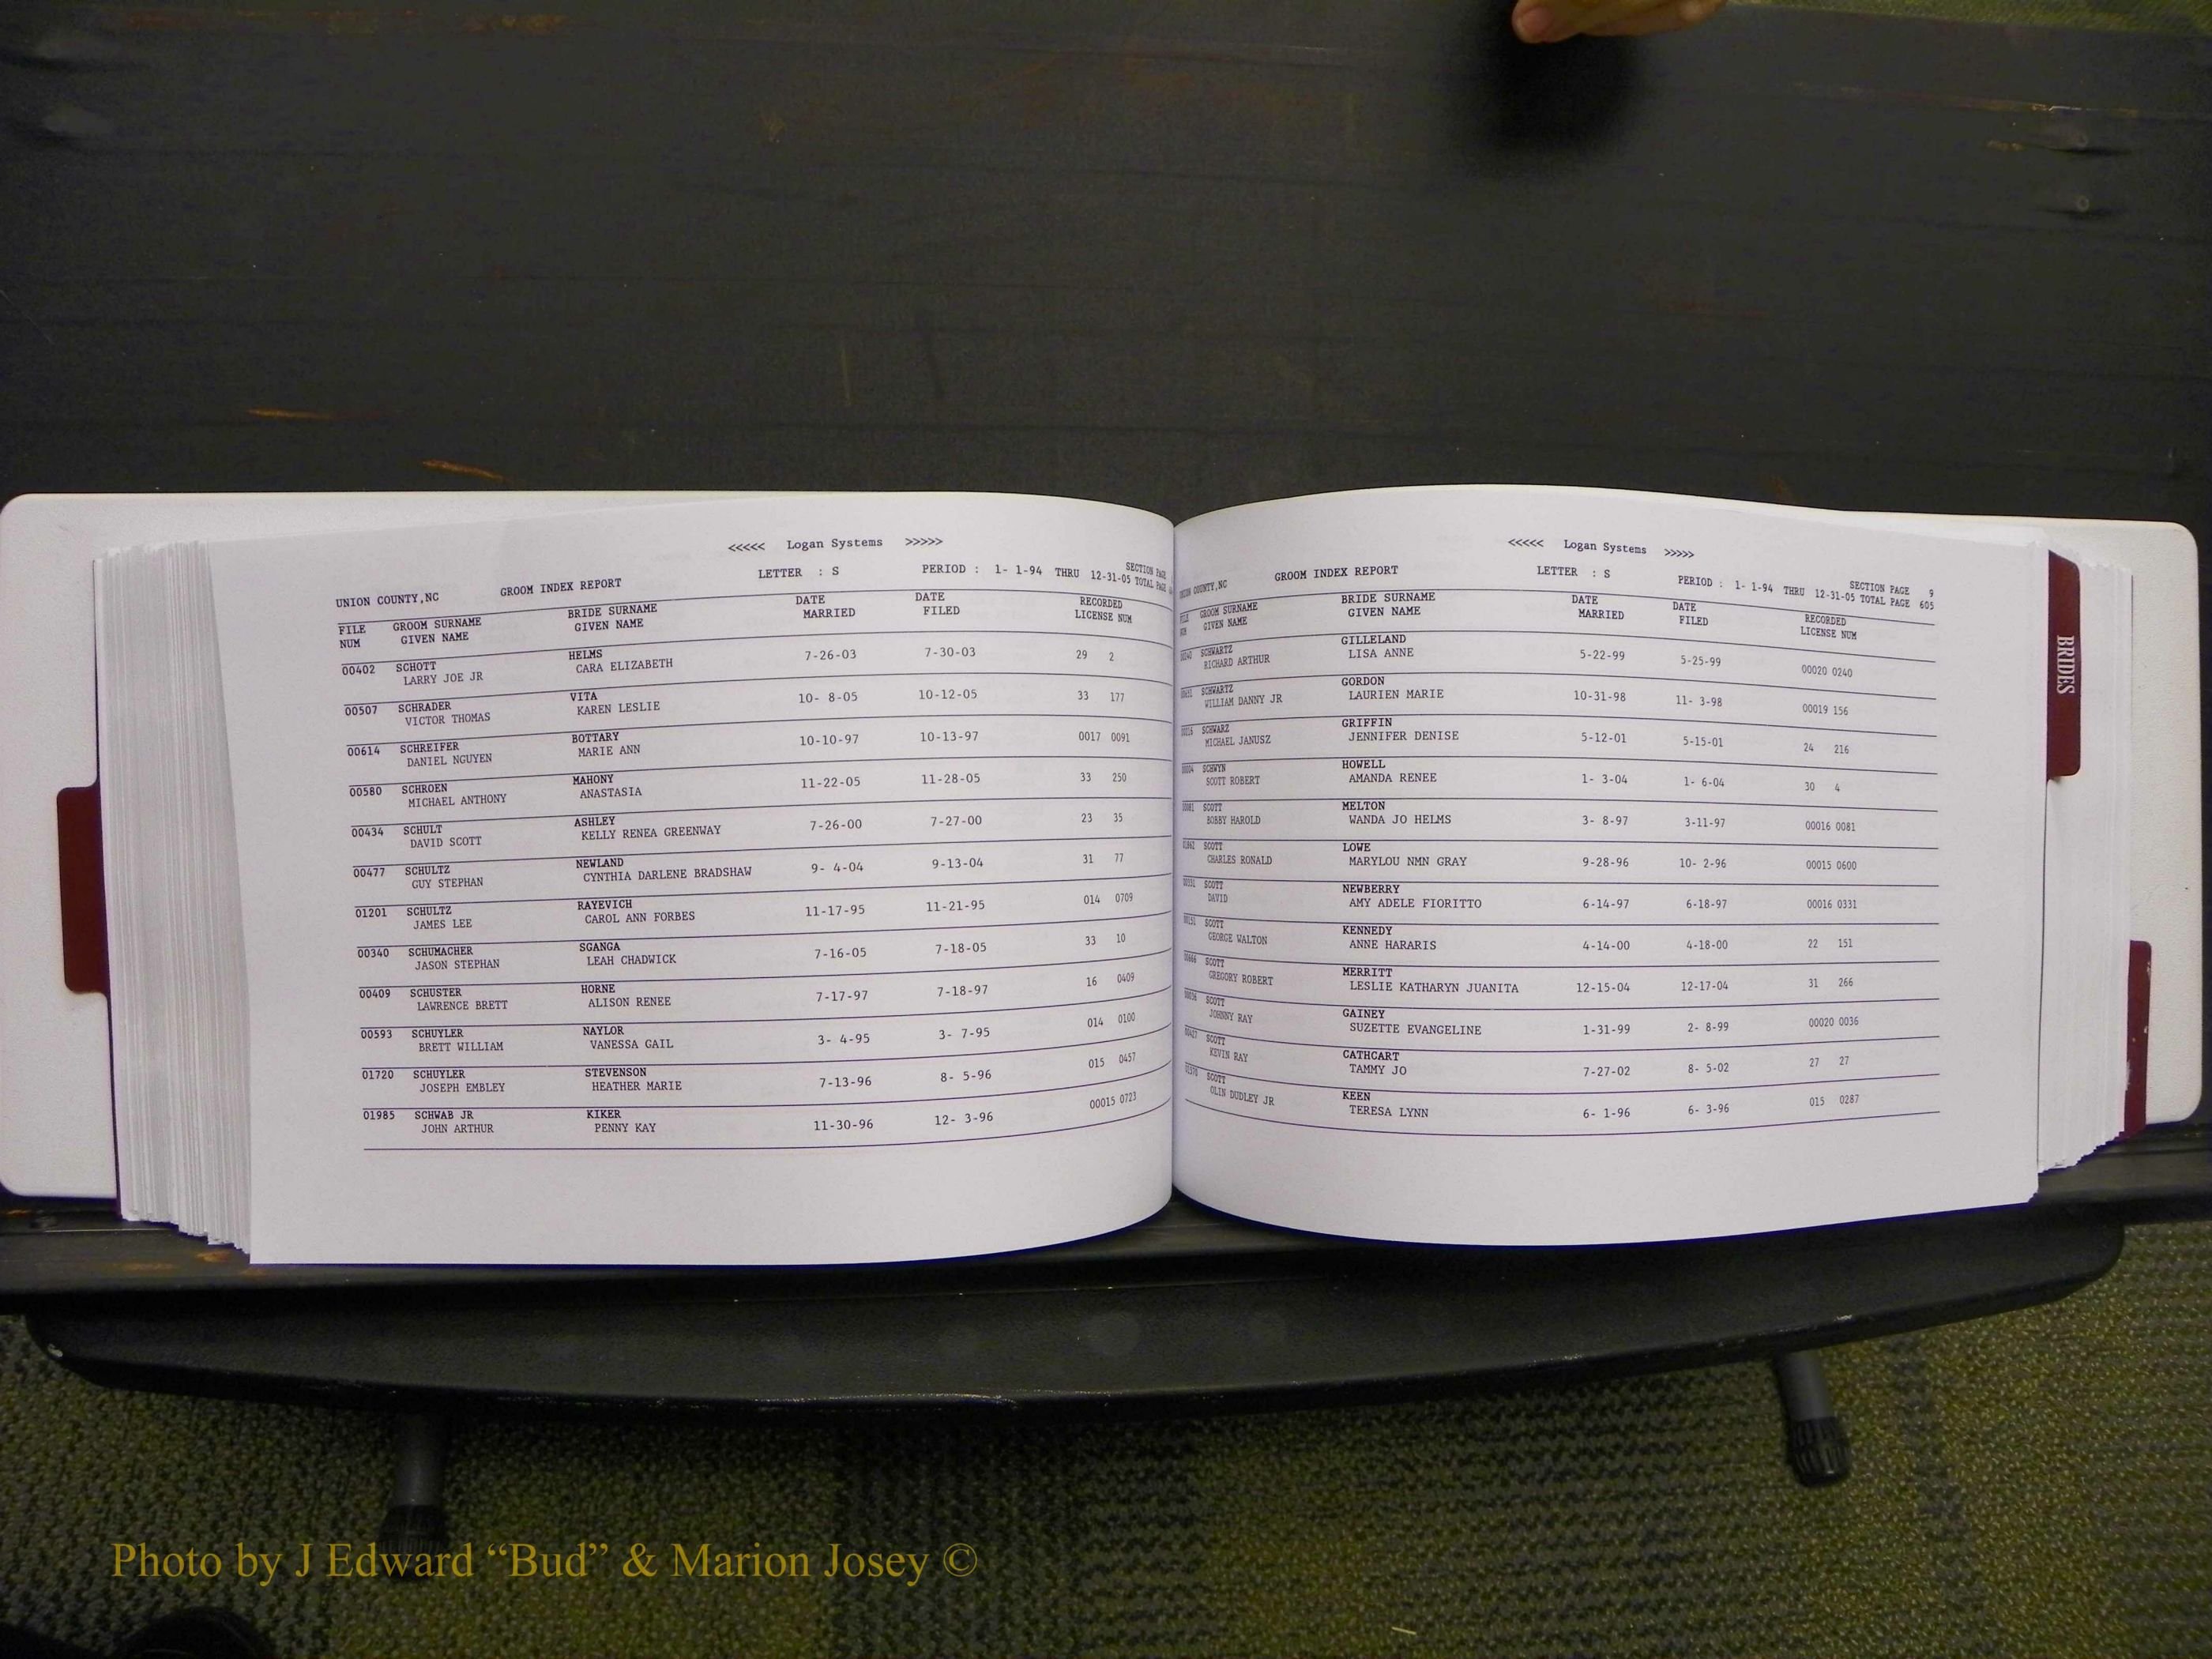 <<<<< Logan Systems >>>>>
UNION COUNTY,NC GROOM INDEX REPORT LETTER : S PERIOD : 1- 1-94 THRU 12-31-05 SECTION PAGE
TOTAL PAGE
FILE GROOM SURNAME BRIDE SURNAME DATE DATE RECORDED
NUM GIVEN NAME GIVEN NAME MARRIED FILED LICENSE NUM
00402 SCHOTT HELMS 7-26-03 7-30-03 29 2
LARRY JOE JR CARA ELIZABETH
00507 SCHRADER VITA 10- 8-05 10-12-05 33 177
VICTOR THOMAS KAREN LESLIE
00614 SCHREIFER BOTTARY 10-10-97 10-13-97 0017 0091
DANIEL NGUYEN MARIE ANN
00580 SCHROEN MAHONY 11-22-05 11-28-05 33 250
MICHAEL ANTHONY ANASTASIA
00434 SCHULT ASHLEY 7-26-00 7-27-00 23 35
DAVID SCOTT KELLY RENEA GREENWAY
00477 SCHULTZ NEWLAND 9- 4-04 9-13-04 31 77
GUY STEPHAN CYNTHIA DARLENE BRADSHAW
01201 SCHULTZ RAYEVICH 11-17-95 11-21-95 014 0709
JAMES LEE CAROL ANN FORBES
00340 SCHUMACHER SGANGA 7-16-05 7-18-05 33 10
JASON STEPHAN LEAH CHADWICK
00409 SCHUSTER HORNE 7-17-97 7-18-97 16 0409
LAWRENCE BRETT ALISON RENEE
00593 SCHUYLER NAYLOR 3- 4-95 3- 7-95 014 0100
BRETT WILLIAM VANESSA GAIL
01720 SCHUYLER STEVENSON 7-13-96 8- 5-96 015 0457
JOSEPH EMBLEY HEATHER MARIE
01985 SCHWAB JR KIKER 11-30-96 12- 3-96 00015 0723
JOHN ARTHUR PENNY KAY
<<<<< Logan Systems >>>>>
UNION COUNTY,NC GROOM INDEX REPORT LETTER : S PERIOD : 1- 1-94 THRU 12-31-05 SECTION PAGE 9
TOTAL PAGE 605
FILE GROOM SURNAME BRIDE SURNAME DATE DATE RECORDED
NUM GIVEN NAME GIVEN NAME MARRIED FILED LICENSE NUM
SCHWARTZ GILLELAND 5-22-99 5-25-99 00020 0240
RICHARD ARTHUR LISA ANNE
SCHWARTZ GORDON 10-31-98 11- 3-98 00019 156
WILLIAM DANNY JR LAURIEN MARIE
SCHWARZ GRIFFIN 5-12-01 5-15-01 24 216
MICHAEL JANUSZ JENNIFER DENISE
SCHWYN HOWELL 1- 3-04 1- 6-04 30 4
SCOTT ROBERT AMANDA RENEE
SCOTT MELTON 3- 8-97 3-11-97 00016 0081
BOBBY HAROLD WANDA JO HELMS
SCOTT LOWE 9-28-96 10- 2-96 00015 0600
CHARLES RONALD MARYLOU NMN GRAY
SCOTT NEWBERRY 6-14-97 6-18-97 00016 0331
DAVID AMY ADELE FIORITTO
SCOTT KENNEDY 4-14-00 4-18-00 22 151
GEORGE WALTON ANNE HARARIS
SCOTT MERRITT 12-15-04 12-17-04 31 266
GREGORY ROBERT LESLIE KATHARYN JUANITA
SCOTT GAINEY 1-31-99 2- 8-99 00020 0036
JOHNNY RAY SUZETTE EVANGELINE
SCOTT CATHCART 7-27-02 8- 5-02 27 27
KEVIN RAY TAMMY JO
SCOTT KEEN 6- 1-96 6- 3-96 015 0287
OLIN DUDLEY JR TERESA LYNN
BRIDES
Photo by J Edward “Bud” & Marion Josey ©